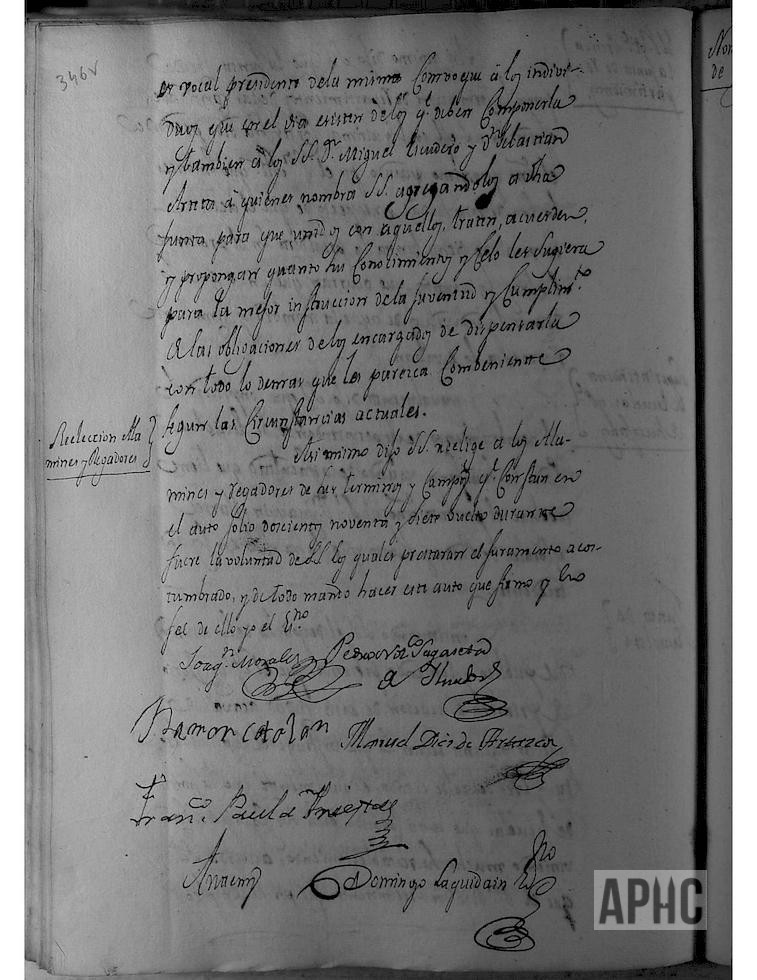 346v
vocal presidente dela misma Comboque à los indivi-
duos que en el dia existen de los q.e deben Componerla
y tambien à los SS. D.n Miguel Escudero y D.n Sebastian
Arteta à quienes nombra S.S. agregandolos a dha
Junta para que unidos con aquellos, traten, acuerden,
y propongan quanto sus Conocimientos y Celo les Sugiera
para la mejor instruccion de la Juventud y Cumplim.to
à las obligaciones de los encargados de dispensarla
con todo lo demas que les parezca Combeniente
segun las Circunstancias actuales.
Reeleccion de Ala
mines y Regadores
Asi mismo dijo S.S. reelige a los Ala-
mines y regadores de sus terminos y Campos q.e Constan en
el auto folio doscientos noventa y siete vuelto durante
fuere la voluntad de S.S. los quales prestaran el juramento acos-
tumbrado, y de todo mandó hacer este auto que firmo y hio
fee de ello yo el Es.no
Joaq.n Morales
Pedro Vic.o Sagaseta
de Ilurdoz
Ramon Catalan
Manuel Diez de Artazcoz
Fran.co Paula
Antemi
Domingo Laquidain Es.no
Non
de
APHC